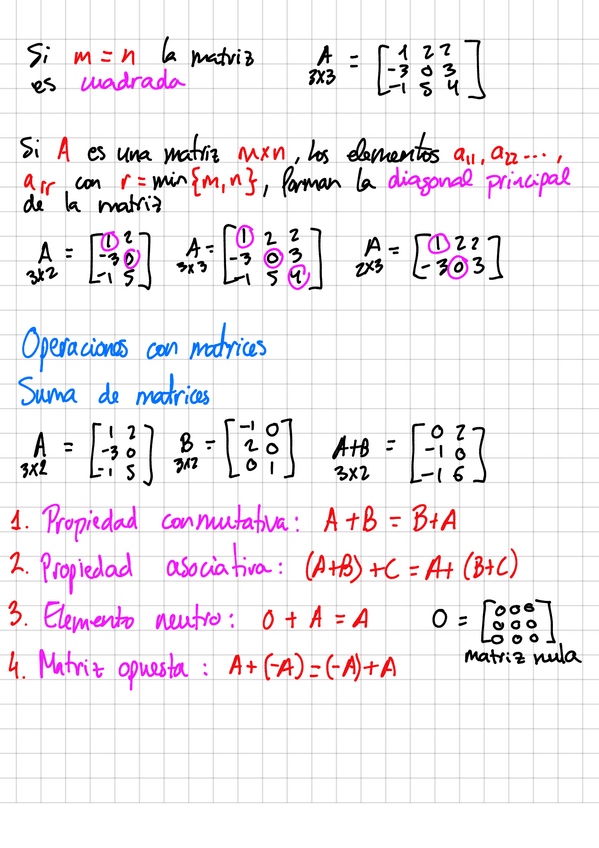 Si m = n la matriz
es cuadrada
A 3x3 = [1 2 2
-3 0 3
-1 5 4]
Si A es una matriz mxn, los elementos a11, a22 ...,
arr con r = min{m,n}, forman la diagonal principal
de la matriz
A 3x2 = [1 2
-3 0
-1 5]
A 3x3 = [1 2 2
-3 0 3
-1 5 4]
A 2x3 = [1 2 2
-3 0 3]
Operaciones con matrices
Suma de matrices
A 3x2 = [1 2
-3 0
-1 5]
B 3x2 = [-1 0
2 0
0 1]
A+B 3x2 = [0 2
-1 0
-1 6]
1. Propiedad conmutativa: A+B = B+A
2. Propiedad asociativa: (A+B)+C = A+(B+C)
3. Elemento neutro: 0 + A = A
O = [0 0 0
0 0 0
0 0 0]
matriz nula
4. Matriz opuesta: A+(-A)=(-A)+A